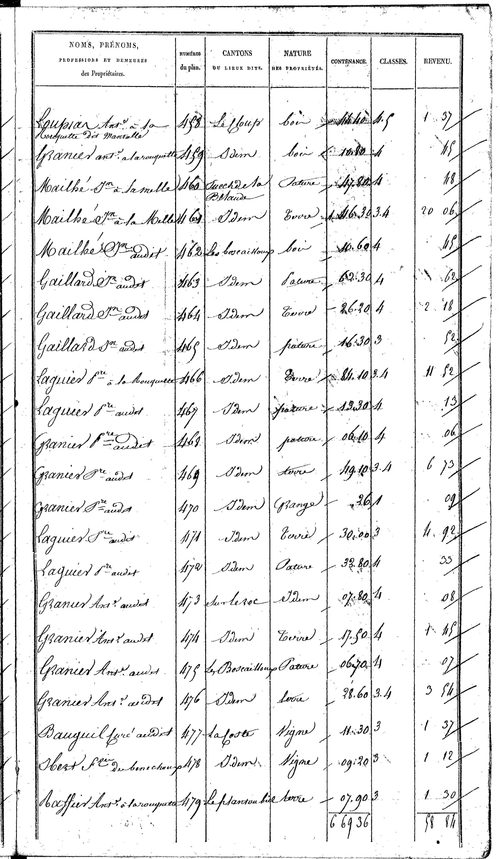 NOMS, PRÉNOMS, PROFESSIONS ET DEMEURES des Propriétaires. NUMÉROS du plan. CANTONS OU LIEUX DITS. NATURE DES PROPRIÉTÉS. CONTENANCE. CLASSES. REVENU.
Loupiac Ant.e à la 458 Le Loup bois 4.5 1 37
Rouquette dit
Granier ant.e a la rouquette 459 Idem bois 10.80 4 45
Mailhé Jn à la melle 460 de la Pature 47.80 4 48
Mailhé Jn à la Melle 461 Idem Terre 46.30 3.4 20 06
Mailhé Jn audit 462 Les boscaillous bois 10.60 4 45
Gaillard Jn audit 463 Idem Pature 62.30 4 62
Gaillard Jn audit 464 Idem Terre 26.20 4 2 18
Gaillard Jn audit 465 Idem pature 16.30 3 52
Laguier Pre à la Rouquette 466 Idem Terre 84.10 3.4 11 52
Laguier Pre audit 467 Idem pature 13.30 4 13
Granier Pre audit 468 Idem pature 06.10 4 06
Granier Pre audit 469 Idem terre 49.10 3.4 6 73
Granier Pre audit 470 Idem Grange 26 1 09
Laguier Pre audit 471 Idem Terre 30.00 3 4 92
Laguier Pre audit 472 Idem Pature 32.80 4 33
Granier Ant.e audit 473 Sur le roc Idem 07.80 4 08
Granier Ant.e audit 474 Idem Terre 17.50 4 1 45
Granier Ant.e audit 475 Les Boscaillous Pature 06.70 4 07
Granier Ant.e audit 476 Idem terre 28.60 3.4 3 54
Bauguil audit 477 La Coste Vigne 11.30 3 1 37
478 Idem Vigne 09.20 3 1 12
Raffier Ant.e à la rouquette 479 terre 07.90 3 1 30
6 69 36 58 84